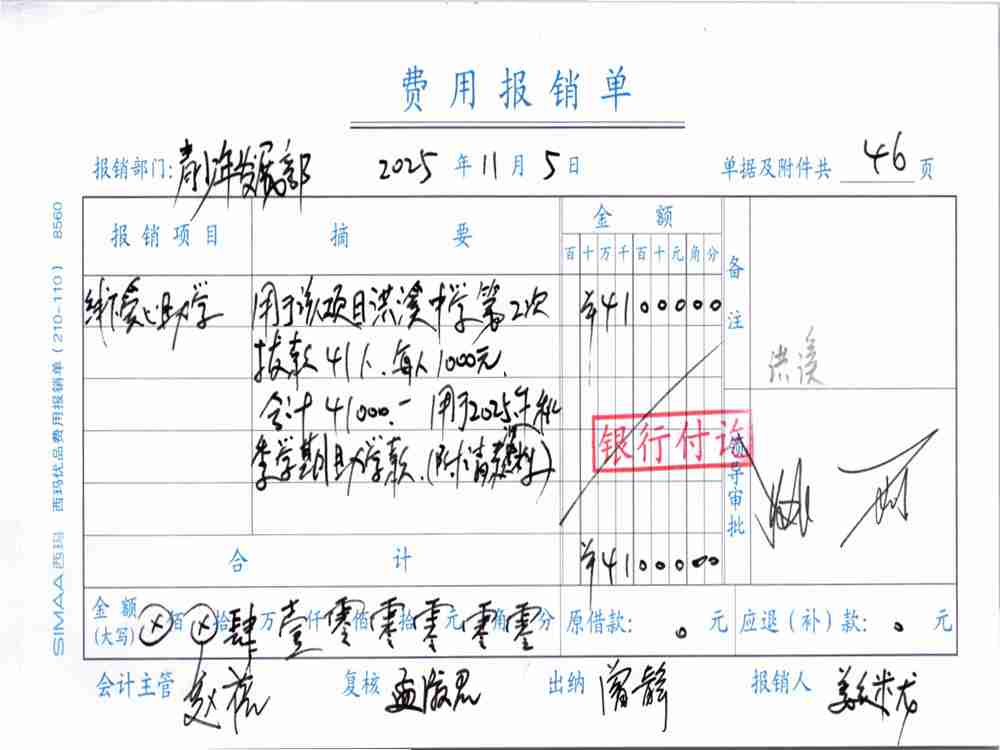 费用报销单
报销部门: 青少年发展部 2025 年 11 月 5 日 单据及附件共 46 页
报销项目 摘要 金额 备注
百 十 万 千 百 十 元 角 分
线下爱心助学 用于该项目洪溪中学第2次 ¥4100000
拨款41人.每人1000元.
合计41000.- 用于2025年秋
季学期助学款.(附请款材料)
洪溪
银行付讫
领导审批
合计 ¥4100000
金额(大写) ⊗佰 ⊗拾 肆万 壹仟 零佰 零拾 零元 零角 零分 原借款: 0 元 应退(补)款: 0 元
会计主管 复核 出纳 曾静 报销人
SIMAA 西玛 西玛优品费用报销单(210-110) 8560